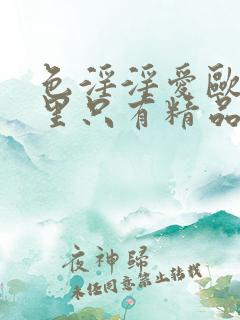 色淫淫爱歐
里只有精品
夜神歸
未经同意禁止转载